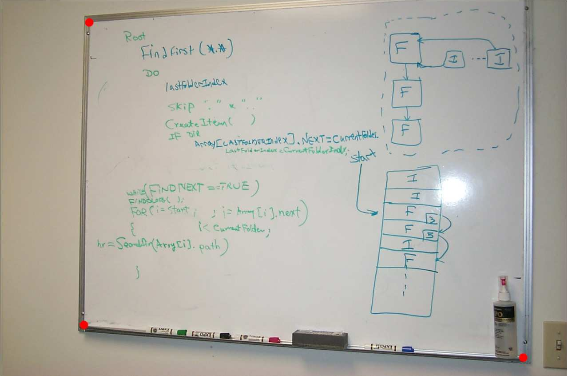 Root
FindFirst (*.*)
DO
lastFolderIndex
Skip "." & ".."
CreateItem( )
IF DIR
Array[LASTFOLDERINDEX].NEXT=CurrentFolder
LastFolderIndex=CurrentFolderIndex;
while(FINDNEXT==TRUE)
FINDCLOSE( );
FOR(i=Start; ; i=Array[i].next)
{ i<CurrentFolder;
hr=SearchDir(Array[i].path)
}
F
I ... I
F
F
Start
I
I
F 2
F 5
I
F